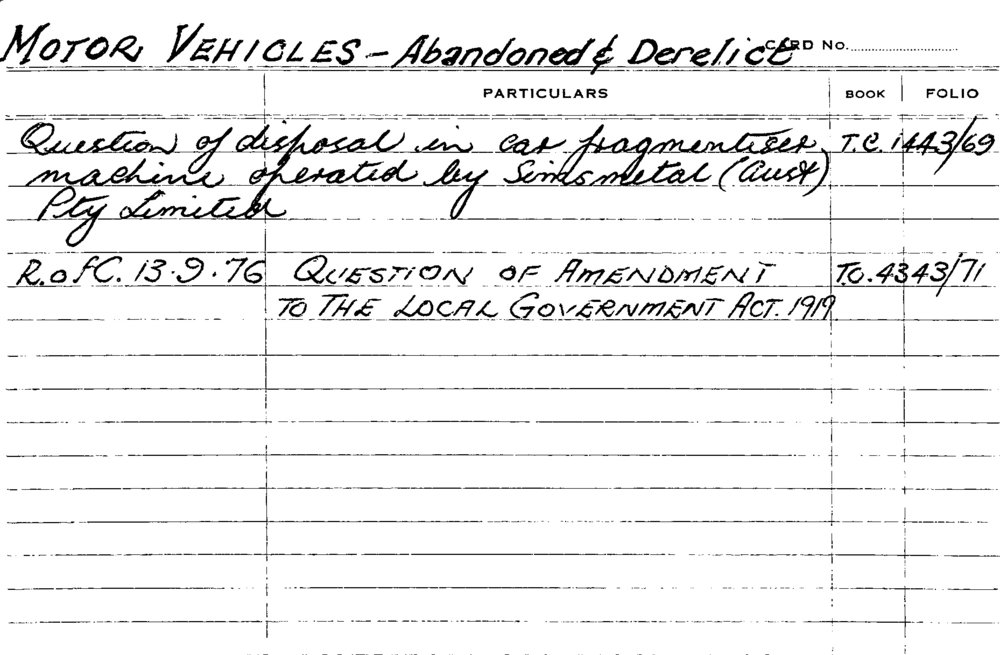 MOTOR VEHICLES - Abandoned & Derelict CARD No.
PARTICULARS BOOK FOLIO
Question of disposal in car fragmentiser T.C. 1443/69
machine operated by Simsmetal (Aust)
Pty Limited
R. of C. 13.9.76 QUESTION OF AMENDMENT T.C. 4343/71
TO THE LOCAL GOVERNMENT ACT. 1919